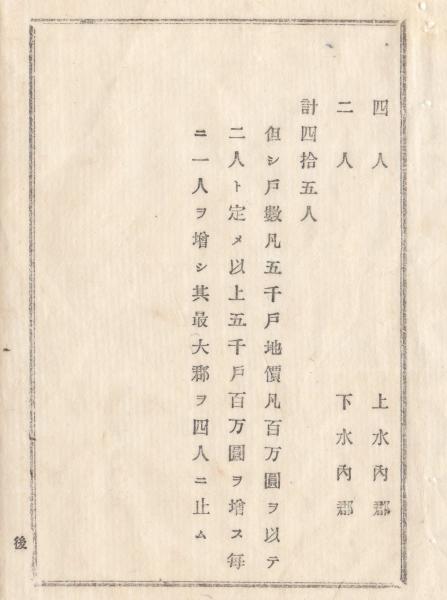 四人　上水內郡
二人　下水內郡
計四拾五人
但シ戶數凡五千戶地價凡百万圓ヲ以テ
二人ト定メ以上五千戶百万圓ヲ增ス每
ニ一人ヲ增シ其最大郡ヲ四人ニ止ム
後